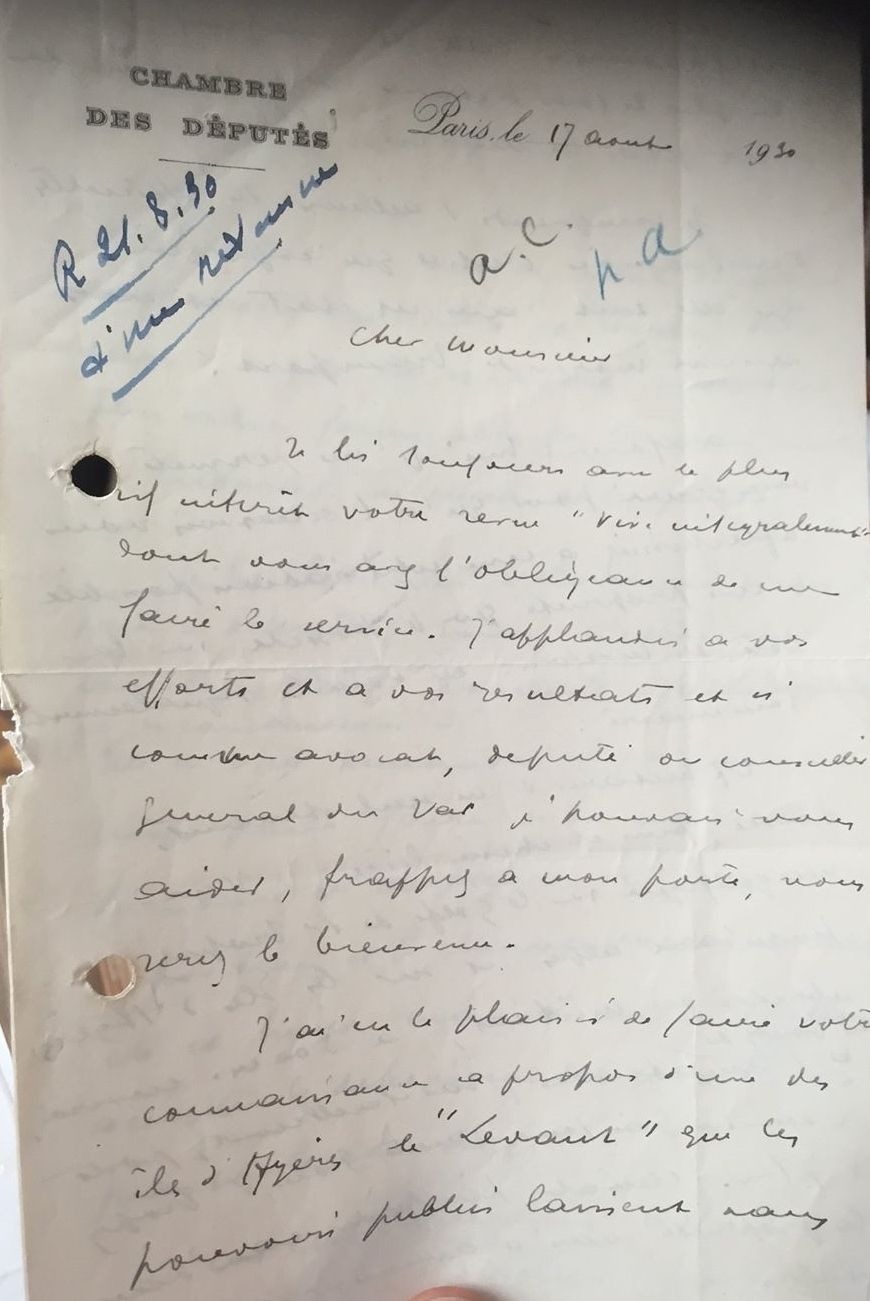 CHAMBRE
DES DÉPUTÉS
Paris, le 17 aout 1930
R 21.8.30
a.c.
p a
Cher Monsieur
Je lis toujours avec le plus
vif intérêt votre revue "Vivre intégralement"
dont vous avez l'obligeance de me
faire le service. J'applaudis a vos
efforts et a vos resultats et si
comme avocat, deputé ou conseiller
general du Var je pouvais vous
aider, frappez a mon porte, vous
serez le bienvenu.
J'ai eu le plaisir de faire votre
connaissance a propos d'une des
îles d'Hyères le "Levant" que les
pouvoirs publics laissent sans